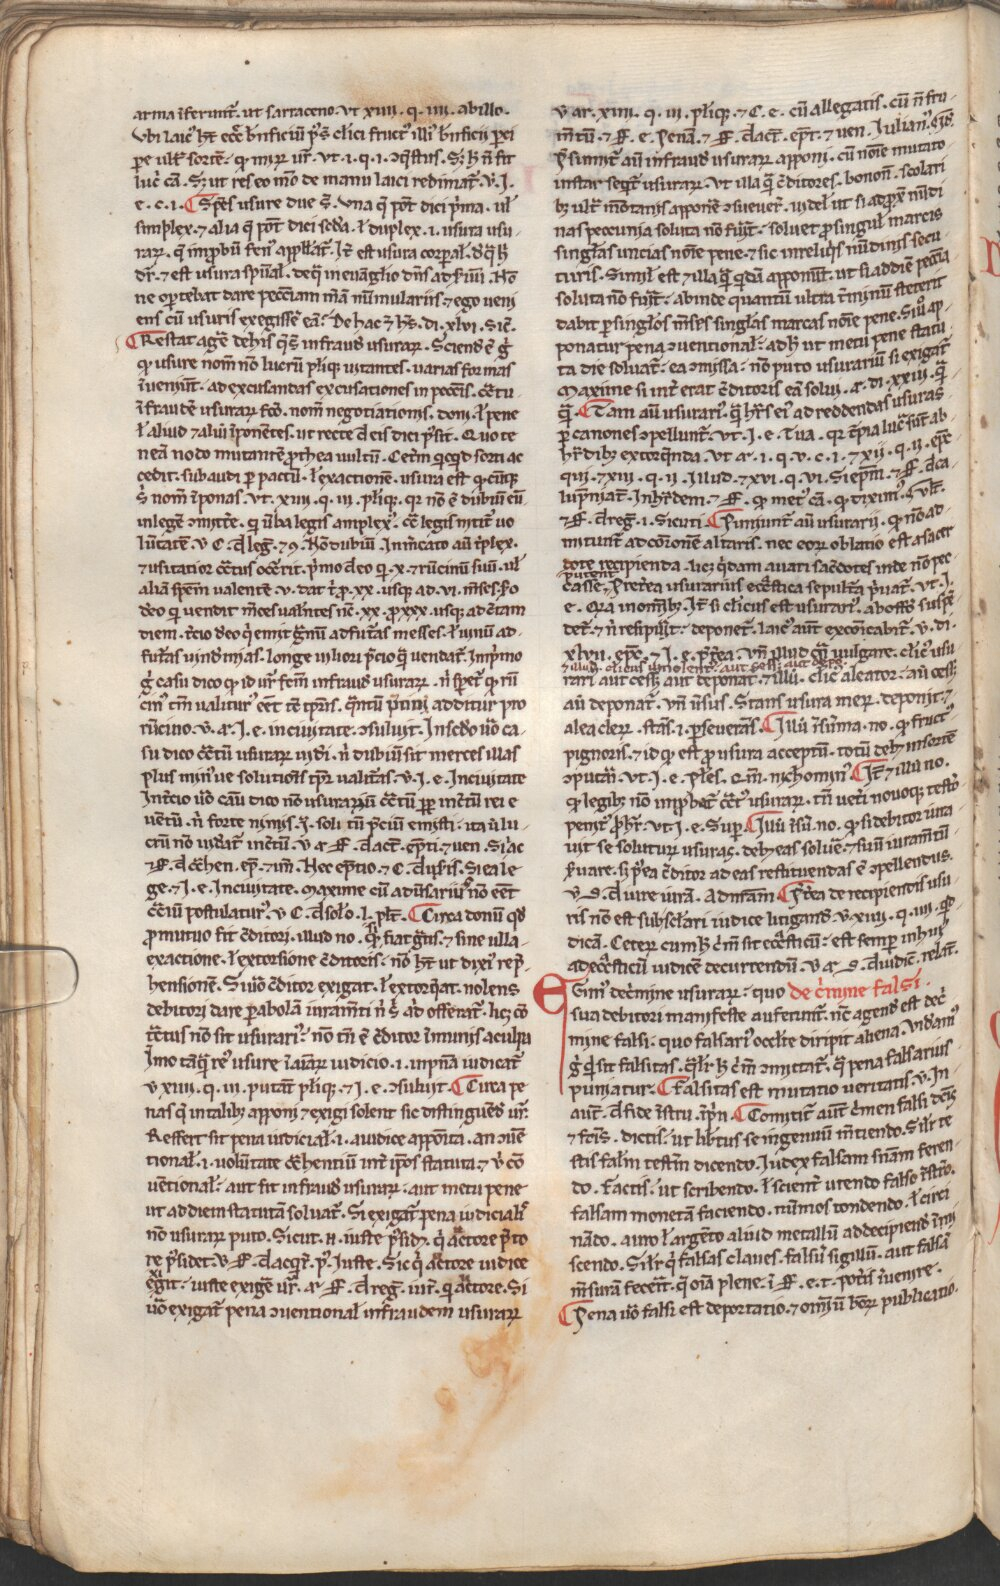 arma īferunt᷑. ut sarraceno. vt xxiii. q. iiii. ab illo.
Vbi laicꝰ ht̄ eccl̄ bn̄ficiū ꝑ s̄. clici fructꝰ illiꝰ bn̄ficii ꝑci
pe ult᷑ sortē. q̄ mir᷑ ur᷑. vt. i. q. i. ɔq̄stus. Sꝫ h̄ n̄ fit
luc̄ cā. Sꝫ ut res eo mō de manu laici redimat᷑. v. J.
e. c. i. Sp̄es usure due s̄. una q̄ pōt dici p̄ma. ul̄
simplex. ⁊ alia q̄ pōt dici sc̄da. ł duplex. i. usura usu
raꝝ. q̄ improbū fenꝰ appllat᷑. Jt̄ est usura corꝑal̄. d̄ q̄ h̄
dr̄. ⁊ est usura spūal̄. de q̄ in euāglio dn̄s ad ẜuū. No
ne oportebat dare pecc̄iam m̄ā nūmulariis ⁊ ego veni
ens cū usuris exegissē eā. De hac ī hꝰ. di. xlvi. Sic̄.
Restat agē de his q̄ s̄ in fraudē usuraꝝ. Sciend̄ ē ḡ
qꝰ usure nom̄ nō lucrū pl̄iqꝫ uitantes. uarias formas
īueniūt. ad excusandas excusationes in peccīs. cc̄tu
ī fraudē usuraꝝ fc̄o. nom̄ negotiationis. doni. ł pene
ł aliud ⁊ aliū īponētes. ut recte d̄ eis dici p̄sit. Quo te
neā nodo mutantē ꝓthea uultū. Ceterū qicqͥd sorti ac
cedit. subaudi ꝑ pactū. ł exactionē. usura est q̄cūqꝫ
s̄ nom̄ īponas. vt. xiiii. q. iii. pl̄iqꝫ. qꝛ nō ē dubiū eū
in legē ɔmitt̄e. q̄ u̅ba legis amplexꝰ. cͦ legis nitit᷑ uo
lūtatē. v C. d̄ leg̅. ⁊ ɔ. Nō dubiū. In m̄cato aū t̓plex.
⁊ usitatior cc̄tus occr̄rit. p̓mo d̄eo q̄. x. ⁊ rūcinū suū. ul̄
aliā sp̄em valente. v. dat t̓ p̄. xx. usqꝫ ad. vi. m̄ses. Sc̄o
d̄eo q̄ uendit m̄ces ualn̄tes nc̄. xx. ꝓ xxx. usqꝫ ad c̄tam
diem. tc̄io d̄eo q̄ emit gͣnū ad fut᷑as messes. ł uinū ad
fut᷑as uind̄mias. longe uiliori p̄cio q̄ vendat᷑. In p̓mo
ḡ casu dico qꝰ id ur᷑ fc̄m in fraud̄ usuraꝝ. n̄ sꝑet᷑ qꝰ rū
cinꝰ tm̄ valiturꝰ eēt tē tp̄ris. qͣntū p̄tiū additur pro
rūcino. v. a᷑. J. e. in ciuitate. ɔsuluit. In sc̄do uͦo ca
su dico cc̄tū usuraꝝ iud̓i. n̄ dubiū sit merces illas
plus min ꝰue solutionis tp̄r ualit᷑as. v. J. e. In ciuitate
In tc̄io uͦo cāu dico nō usurariū cc̄tū ꝓꝑ inc̄tū rei e
uētū. n̄ forte nimis. J. soli tū p̄ciū emisti. ita qͣ lu
crū nō uid̓at᷑ inc̄tū. v a᷑ ff. d̄ act̄. ep̄ti. ⁊ uen. Si ac
⁊ ff. d̄ cc̄hen. ep̄. ⁊ uꝰ. Hec ep̄tio. ⁊ C. d̄ uſris. Si ea le
ge ⁊ J. e. In ciuitate. maxime cū aduſariuſ nō eēt
cc̄iū postulaturꝰ. v C. d̄ sol̄o. l. pl̄t. Circa donū qd̄
ꝓ mutuo fit cͣditori. illud nō. qꝰ si fiat gͣtis ⁊ sine ulla
exactione. ł extorsione cͣditoris. nō ht̄ ut dixi rep̄
hensionē. Si uͦo cͣditor exigat. ł extorq̄at. nolens
debitori dare ꝑ abolā iuram̄ti n̄ s̄. ad offerat᷑. licꝫ cō
tc̄tus nō sit usurariꝰ. nō tn̄ ē cͣditor īmunis a culpa
Imo tāqͣ reꝰ usure ī aiarꝝ iudicio. i. in pn̄ia iudicat᷑
v xiiii. q. iii. putāt pl̄iqꝫ. ⁊ J. e. ɔsuluit. Circa pe
nas q̄ in talibꝫ apponi ⁊ exigi solent sic distinguēd̄ ur᷑.
Reffert sit pena iudicial̄. i. a iudice apposita. an ɔuē
tional̄. i. uolūtate cc̄hentiū int̄ ip̄os statuta. ⁊ v̄ cō
uētional̄. aut fit in fraud̄ usuraꝝ. aut metu pene
ut ad diem statutā soluat᷑. Si exigat᷑ pena iudicial̄
nō usuraꝝ puto. Sicut. n. iuste p̄sidꝫ. q̄ a͛ctore p̄to
re p̄sidet. v ff. d̄ acq̄r᷑. p̄. Juste. Sic q̄ a͛ctore iudice
exigit. iuste exigē ur᷑. a᷑ ff. d̄ reg̅. iur᷑. q̄ a͛ctore. Si
uͦo exigat᷑ pena ɔuentional̄ in fraudem usuraꝝ
v ar. xiiii. q. iii. pl̄iqꝫ. ⁊ C. e. cū allegatis. cū n̄ fru
m̄tū. ⁊ ff. e. Penā. ⁊ ff. d̄ act̄. ep̄t. ⁊ uen. Julianꝰ. ei̓d̄.
P̄sumit᷑ aū in fraud̄ usuraꝝ apponi. cū noīe mutato
instar seqͥt᷑ usuraꝝ. vt illa q̄ cͣditores. bonon̄. scolari
bꝫ ult᷑ mōtanis apponē ɔsueuert̄. uidel̄ ut si ad ꝓx nūdi
nas peccunia soluta nō fuit᷑. soluet ꝓ singul̄ marcis
singłas uncias noīe pene. ⁊ sic in reliqͥs nūdinis secu
turis. Simil̄ est ⁊ illa q̄ qͥdā apponūt. ut si ad diē pecc̄ia
soluta nō fuit᷑. abinde quantū ultra t᷑minū steterit
dabit ꝑ singlos m̄ses singłas marcas noīe pene. Si uͦ ap
ponatur pena ɔuentional̄. ad h̄ ut metu pene statu
ta die soluat᷑. ea ɔmissa. nō puto usurariū si exigat᷑
maxime si int̄ erat cͣditoris eā solui. a᷑. di. xxiii. q̄
q̄. Tam aū usurarꝰ. q̄ hr̄s eiꝰ ad reddendas usuras
ꝑ canones ɔpellunt᷑. vt. J. e. Tua. qꝛ t᷑pia luc̄ sūt ab
hr̄dibꝫ extorq̄nda. vt a᷑. i. q. v. c. i. ⁊ xii. q. ii. ep̄c
qui. ⁊ xiii. q. ii. Illud. ⁊ xvi. q. vi. Si ep̄m. ⁊ ff. d̄ ca
lūp̄niat᷑. In hr̄dem. ⁊ ff. qꝰ metꝰ cā. qꝰ diximꝰ. §. ult̄.
⁊ ff. d̄ reg̅. i. Sicuti. Puniunt᷑ aū usurarii. qꝰ nō ad
mittunt᷑ ad cōionē altaris. nec eoꝝ oblatio est a sacer
dote recipienda. licꝫ qͥdam auari sac̄dotes inde nō pec
putent
casse. P̄terea usurarius eccl̄iastica sepult᷑a p̓uat᷑. vt. J.
e. Qͥa in omibꝫ. Jt̄ si clicus est usurarꝰ. ab offō suspē
det᷑. ⁊ n̄ resipuit᷑. deponet᷑. laicꝰ aut̄ excōicabit᷑. v. di.
xlvii. ep̄c. ⁊ J. e. p̄t̄ea. vn̄ illud cc̄ū uulgare. clicꝰ usu
⁊ illud. clicus uinolentꝰ. aut cess. aut deps̄.
rari aut cessꝫ aut deponat. ⁊ illū. clic̄ aleator. aū cessꝫ
aū deponat᷑. vn̄ ūsus. Stans usura mer᷑. deponit. ⁊
alea cler᷑. stās. i. ꝑseuerās. Illū īsūma. no. qꝰ fructꝰ
pignoris. ⁊ id qꝰ est ꝓ usura acceptū. totū debꝫ in sortē
ɔputari. vt. J. e. Pl̄es. Q m̄. ⁊ ɔhomīnꝰ. Jt̄ ⁊ illū no.
qꝰ legibꝫ nō impͦbat᷑ cc̄tꝰ usuraꝝ. tn̄ uet̓i nouoqꝫ testō
penitꝰ ꝓhr̄. vt. J. e. Suꝑ. Illū īsū. no. qꝰ si debitor iura
uit se soluturꝫ usuras. debꝫ eas soluē. ⁊ suū iuram̄tū
ẜuare. si p̄ea cͣditor ad eas restituendas ē ɔpellendus.
v. J. d̄ iure iurā. Ad nr̄am. P̄t̄ea de recipiendis usu
ris nō est sub sc̄lari iudice litigand̄. v. xiiii. q. iiii. qꝰ
dicā. Ceteꝝ cum h̄ c᷑m sit eccl̄iasticū. est semper in huiꝰ
ad eccl̄iasticū iudicē decurrendū. v a᷑ J. d̄ iudic̄. relat᷑.
Egimꝰ de c᷑mine usuraꝝ. quo de c᷑mine falsi.
sua debitori manifeste auferunt᷑. nc̄ agend̄ est de c᷑
mine falsi. quo falsarꝰ occlte diripit aliena. vid̄amꝰ
ḡ qͥd sit falsitas. qͣlit̄ h̄ c᷑m ɔmittat᷑. q̄ pena falsarius
puniatur. Falsitas est mutatio ueritatis. v. In
aut̄. d̄ fide īstru. ī pn̄. Comittit᷑ aut̄ c᷑men falsi dc̄is
⁊ fc̄is. dictis. ut libtus se ingenuū m̄tiendo. Sil̄r te
stis falm̄ testīm dicendo. Judex falsam sn̄iam feren
do. Factis. ut scribendo. ł scient᷑ utendo falso īstr̄o.
falsam monetā faciendo. nūmos tondendo. ł circi
nādo. auro ł argēto aliud metallū ad decipiend̄ īmi
scendo. Sil̄r qͥ falsas claues. falsū sigillū. aut falsā
m̄surā fecerit᷑. q̄ oīa plene. ī ff. e. t. poteris īuenire.
Pena uͦo falsi est deportatio. ⁊ omīū bonoꝝ publicatio.